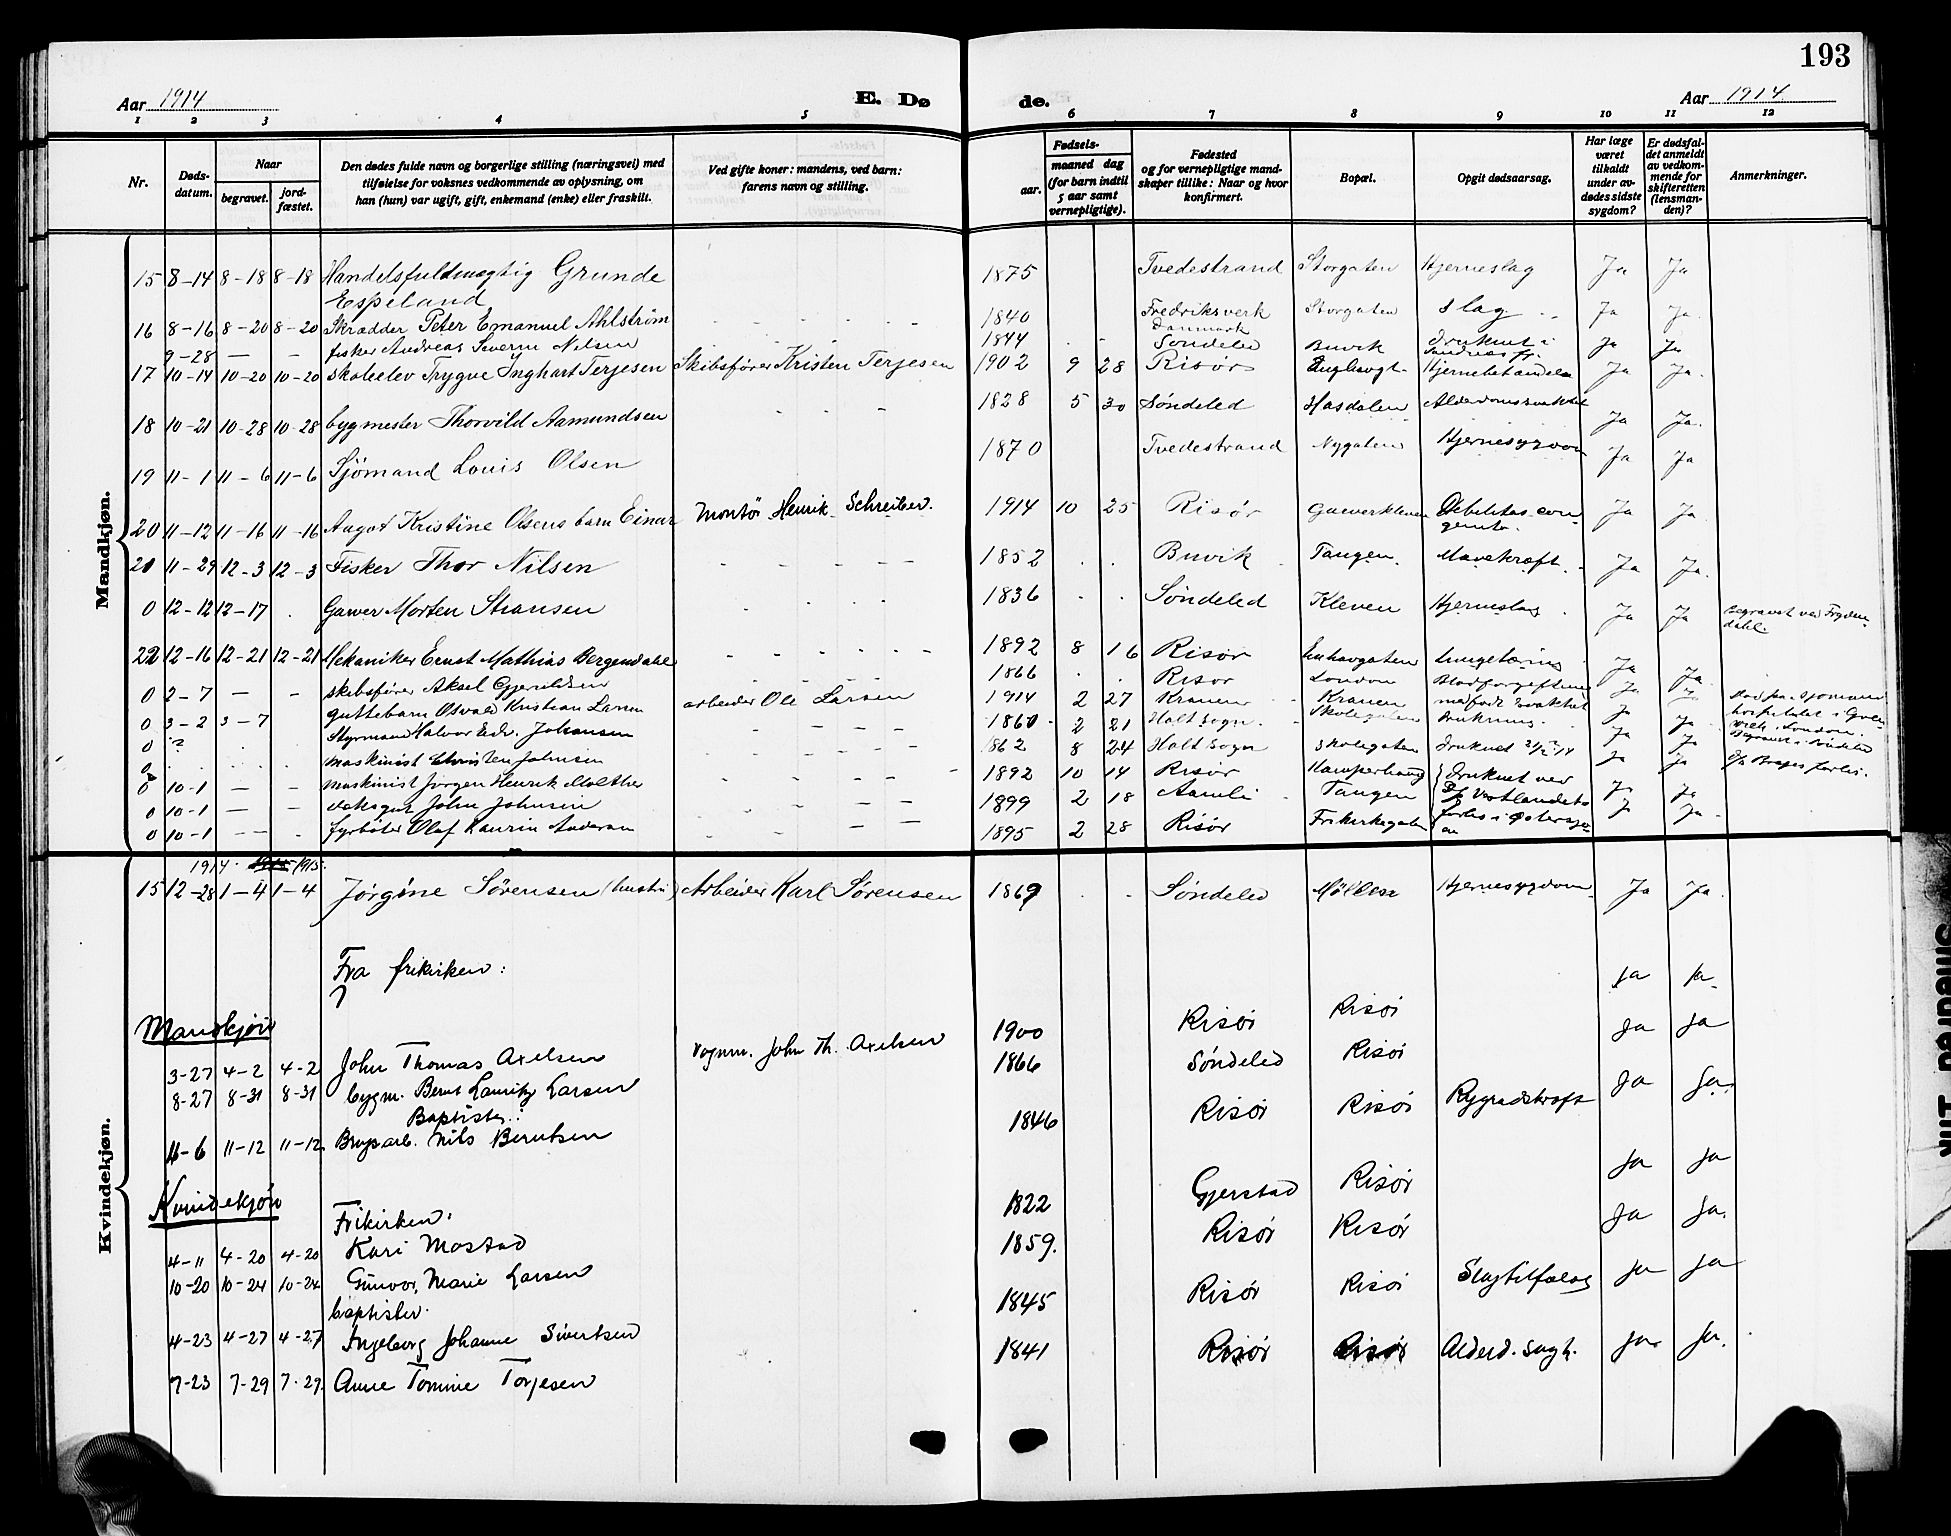 193
Aar 1914 E. Døde. Aar 1914
1 2 3 4 5 6 7 8 9 10 11 12
Nr.
Døds-
datum.
Naar
begravet.
jord-
fæstet.
Den dødes fulde navn og borgerlige stilling (næringsvei) med
tilføielse for voksnes vedkommende av oplysning, om
han (hun) var ugift, gift, enkemand (enke) eller fraskilt.
Ved gifte koner: mandens, ved barn:
farens navn og stilling.
Fødsels-
aar.
maaned dag
(for barn indtil
5 aar samt
vernepligtige).
Fødested
og for vernepligtige mand-
skaper tillike: Naar og hvor
konfirmert.
Bopæl.
Opgit dødsaarsag.
Har læge
været
tilkaldt
under av-
dødes sidste
sygdom?
Er dødsfal-
det anmeldt
av vedkom-
mende for
skifteretten
(lensman-
den)?
Anmerkninger.
Mandkjøn.
15 8-14 8-18 8-18 Handelsfuldmægtig Grunde Espeland 1875 Tvedestrand Storgaten Hjerneslag Ja Ja
16 8-16 8-20 8-20 Skrædder Peter Emanuel Ahlström 1840 Fredriksverk Danmark Storgaten Slag Ja Ja
9-28 — - fisker Andreas Severin Nilsen 1844 Søndeled Buvik druknet i Ja Ja
17 10-14 10-20 10-20 skoleelev Trygve Inghart Terjesen Skibsfører Kristen Terjesen 1902 9 28 Risør Ja Ja
18 10-21 10-28 10-28 bygmester Thorvild Aamundsen 1828 5 30 Søndeled Hasdalen Ja Ja
19 11-1 11-6 11-6 Sjömand Louis Olsen 1870 Tvedestrand Nygaten Hjernesygdom Ja Ja
20 11-12 11-16 11-16 Aagot Kristine Olsens barn Einar Montör Henrik Schreiber. 1914 10 25 Risør Debilitas con- genita. Ja Ja
21 11-29 12-3 12-3 Fisker Thor Nilsen 1852 Buvik Tangen Mavekræft Ja Ja
0 12-12 12-17 Garver Morten 1836 Søndeled Kleven Hjerneslag Ja Ja Begravet ved Frydendahl.
22 12-16 12-21 12-21 Mekaniker Ernst Mathias Bergendahl 1892 8 16 Risør Ja Ja
0 2-7 — - skibsfører Aksel Gjeruldsen 1866 Risør London Blodforgiftning Ja Ja
0 3-2 3-7 guttebarn Osvald Kristian Larsen arbeider Ole Larsen 1914 2 27 Kranen Kranen medfødt svakhet Ja Ja
0 ? Styrmand Halvor Edv. Johansen 1860 2 21 Holt sogn Skolegaten Drukning Ja Ja
0 maskinist Christen Johnsen 1862 8 24 Holt sogn Skolegaten druknet Ja Ja
0 10-1 — - maskinist Jørgen Henrik Molther 1892 10 14 Risør druknet ved Ja Ja
0 10-1 — - dæksgut John Johnsen 1899 2 18 Aamli Tangen D/S Vestlandets Ja Ja
0 10-1 -- - fyrbøter Olaf Laurin Andersen 1895 2 28 Risør Frikirkegaten forlis i Østersjøen
Kvindekjøn.
1914. 1915.
15 12-28 1-4 1-4 Jørgine Sørensen (hustru) Arbeider Karl Sørensen 1869 Søndeled Hjernesygdom Ja Ja
Fra frikirken: ja ja
Mandkjøn
3-27 4-2 4-2 John Thomas Axelsen Vognm. John Th. Axelsen 1900 Risör Risör Ja Ja
8-27 8-31 8-31 bygm. Bernt Lauritz Larsen 1866 Søndeled Risör Ja Ja
Baptister:
11-6 11-12 11-12 Brygsarb. Nils Berntsen 1846 Risör Risör Rygradskræft
Kvindekjön
Frikirken:
4-11 4-20 4-20 Kari Mostad 1822 Gjerstad Risör Ja Ja
10-20 10-24 10-24 Gunvor Marie Larsen 1859. Risør Risör Ja Ja
baptister.
4-23 4-27 4-27 Ingeborg Johanne Sivertsen 1845 Risør Risör Slagtilfælde Ja Ja
7-23 7-29 7-29. Anne Tomine Terjesen 1841 Risør Risør Alderd. svagh. Ja Ja